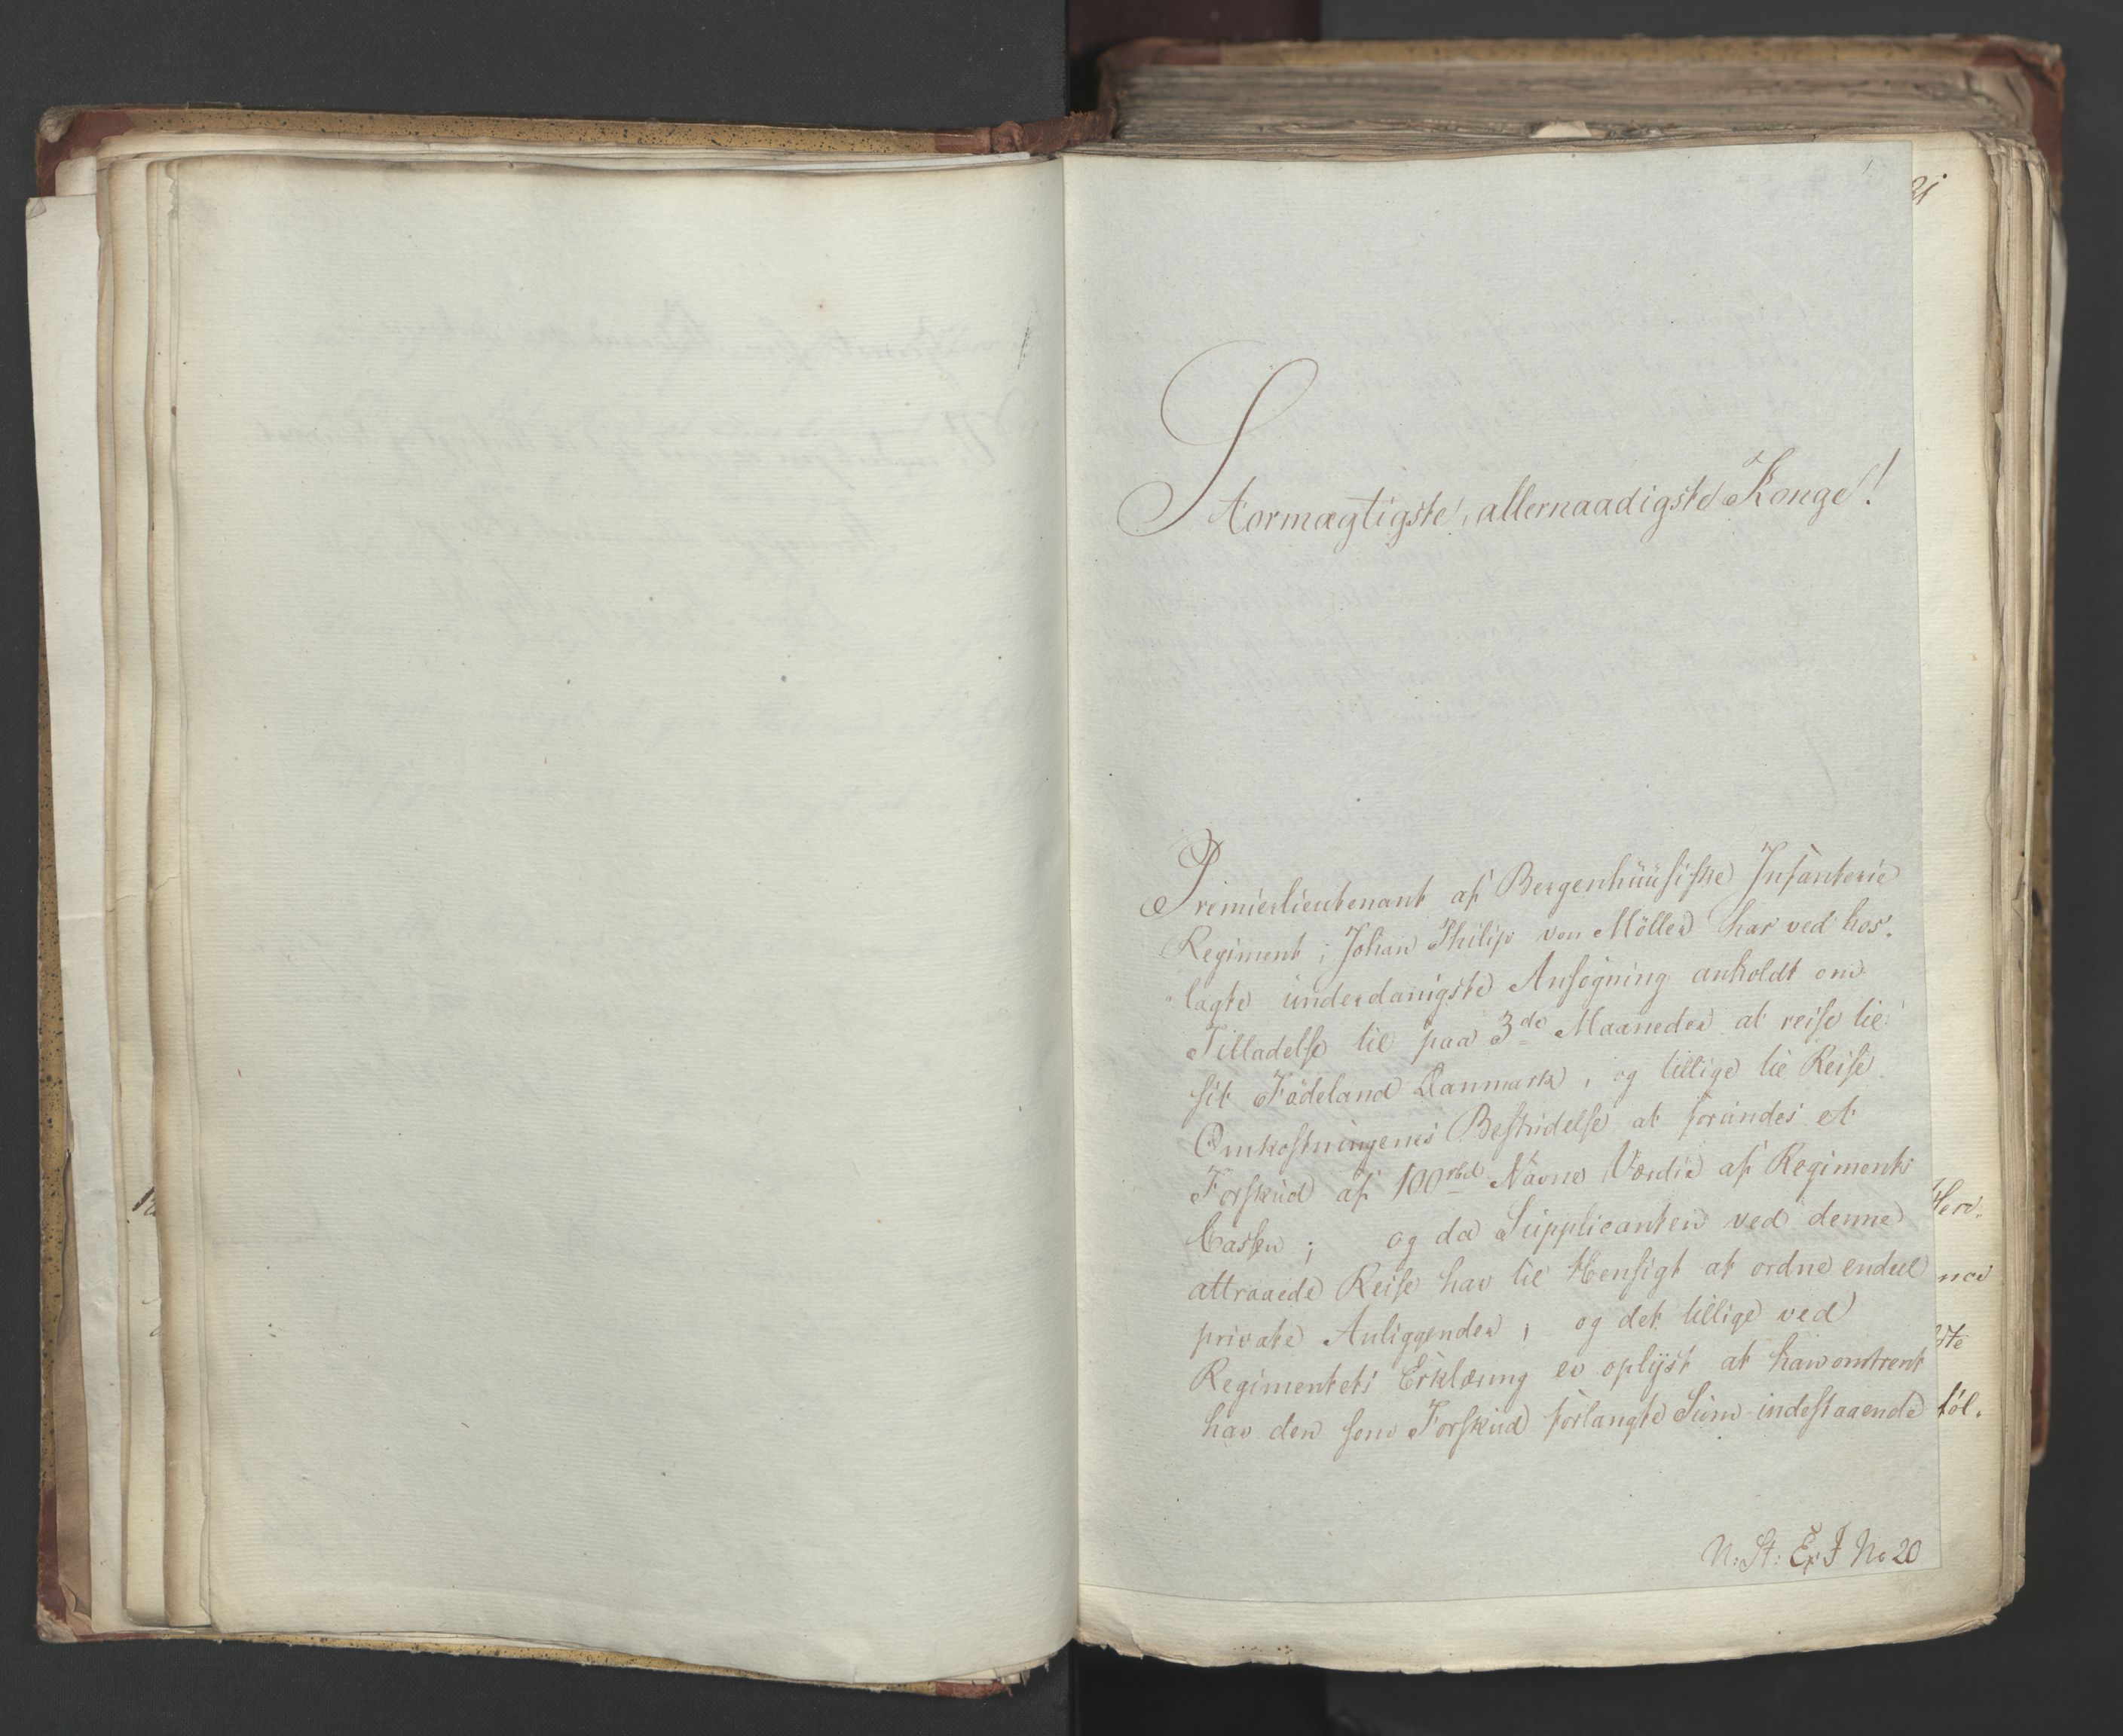 Stormægtigste, allernaadigste Konge!
Premierlieutenant af Bergenhuusiske Infanterie
Regiment, Johan Philip von Möller har ved hos-
lagte underdanigste Ansøgning anholdt om
Tilladelse til paa 3de Maaneder at reise til
sit Födeland Danmark, og tillige til Reise
Omkostningenes Bestridelse at forundes et
Forskud af 100rbd Navne Værdie af Regiments
Cassen; og da Supplicanten ved denne
attraaede Reise har til Hensigt at ordne endeel
private Anliggender, og det tillige ved
Regimentets Erklæring er oplyst at han omtrent
har den som Forskud forlangte Sum indestaaende
N: St: Ex: No 20